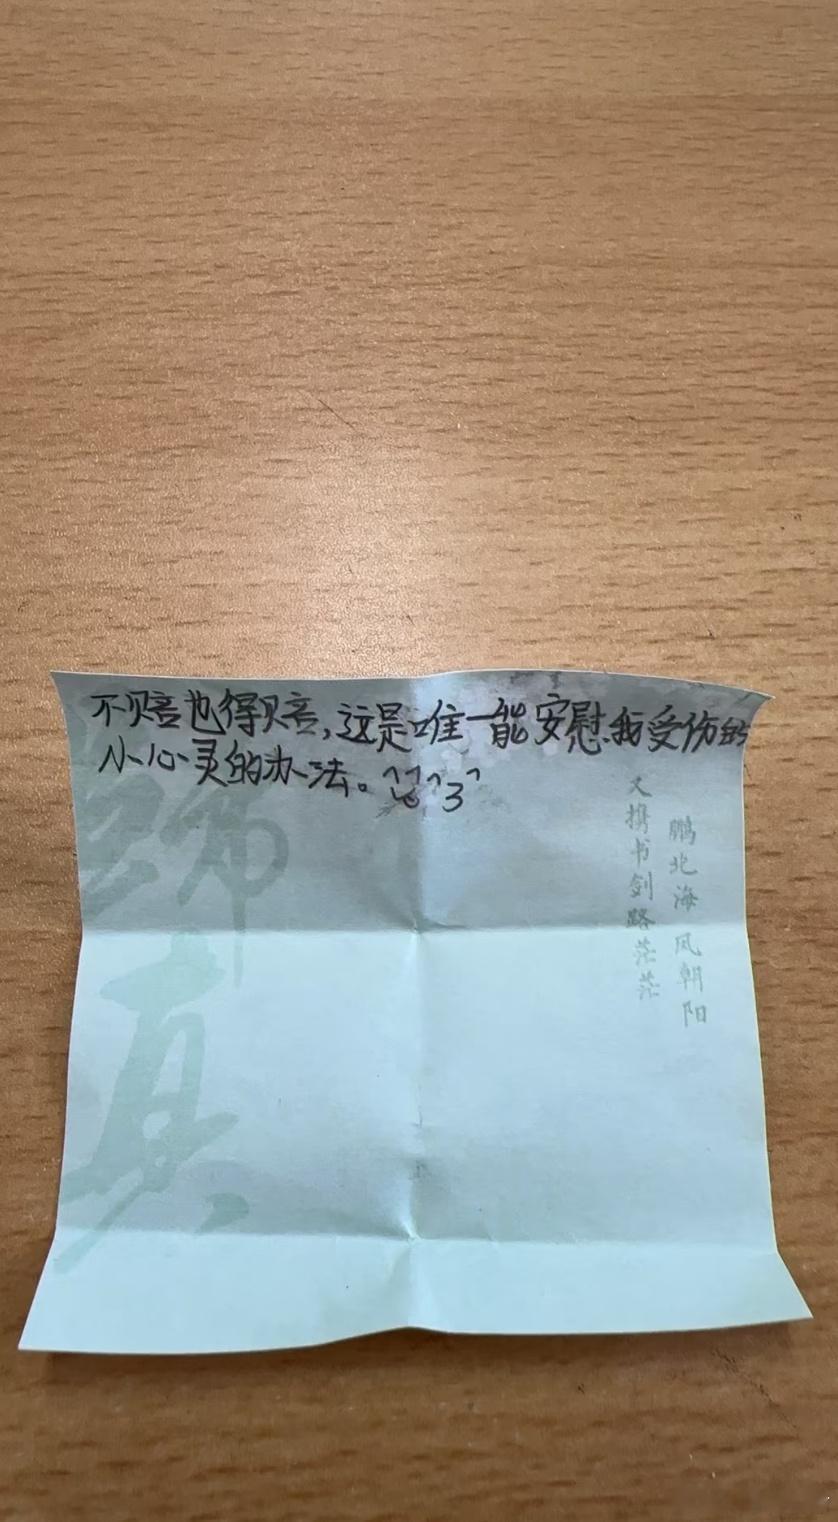 不赔也得赔，这是唯一能安慰我受伤的
小心灵的办法。^3^
鹏北海 凤朝阳
又携书剑路茫茫
真